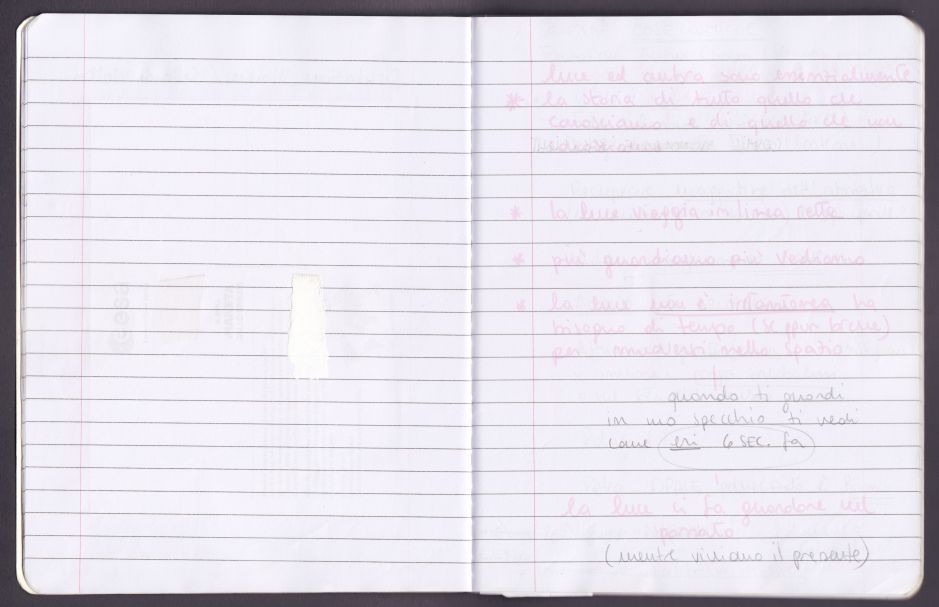 luce ed ombra sono essenzialmente
* la storia di tutto quello che
conosciamo e di quello che non
* la luce viaggia in linea retta
* più guardiamo più vediamo
* la luce non è istantanea ha
bisogno di tempo (seppur breve)
per muoversi nello spazio
quando ti guardi
in uno specchio ti vedi
come eri 6 SEC. fa
la luce ci fa guardare nel
passato
(mentre viviamo il presente)